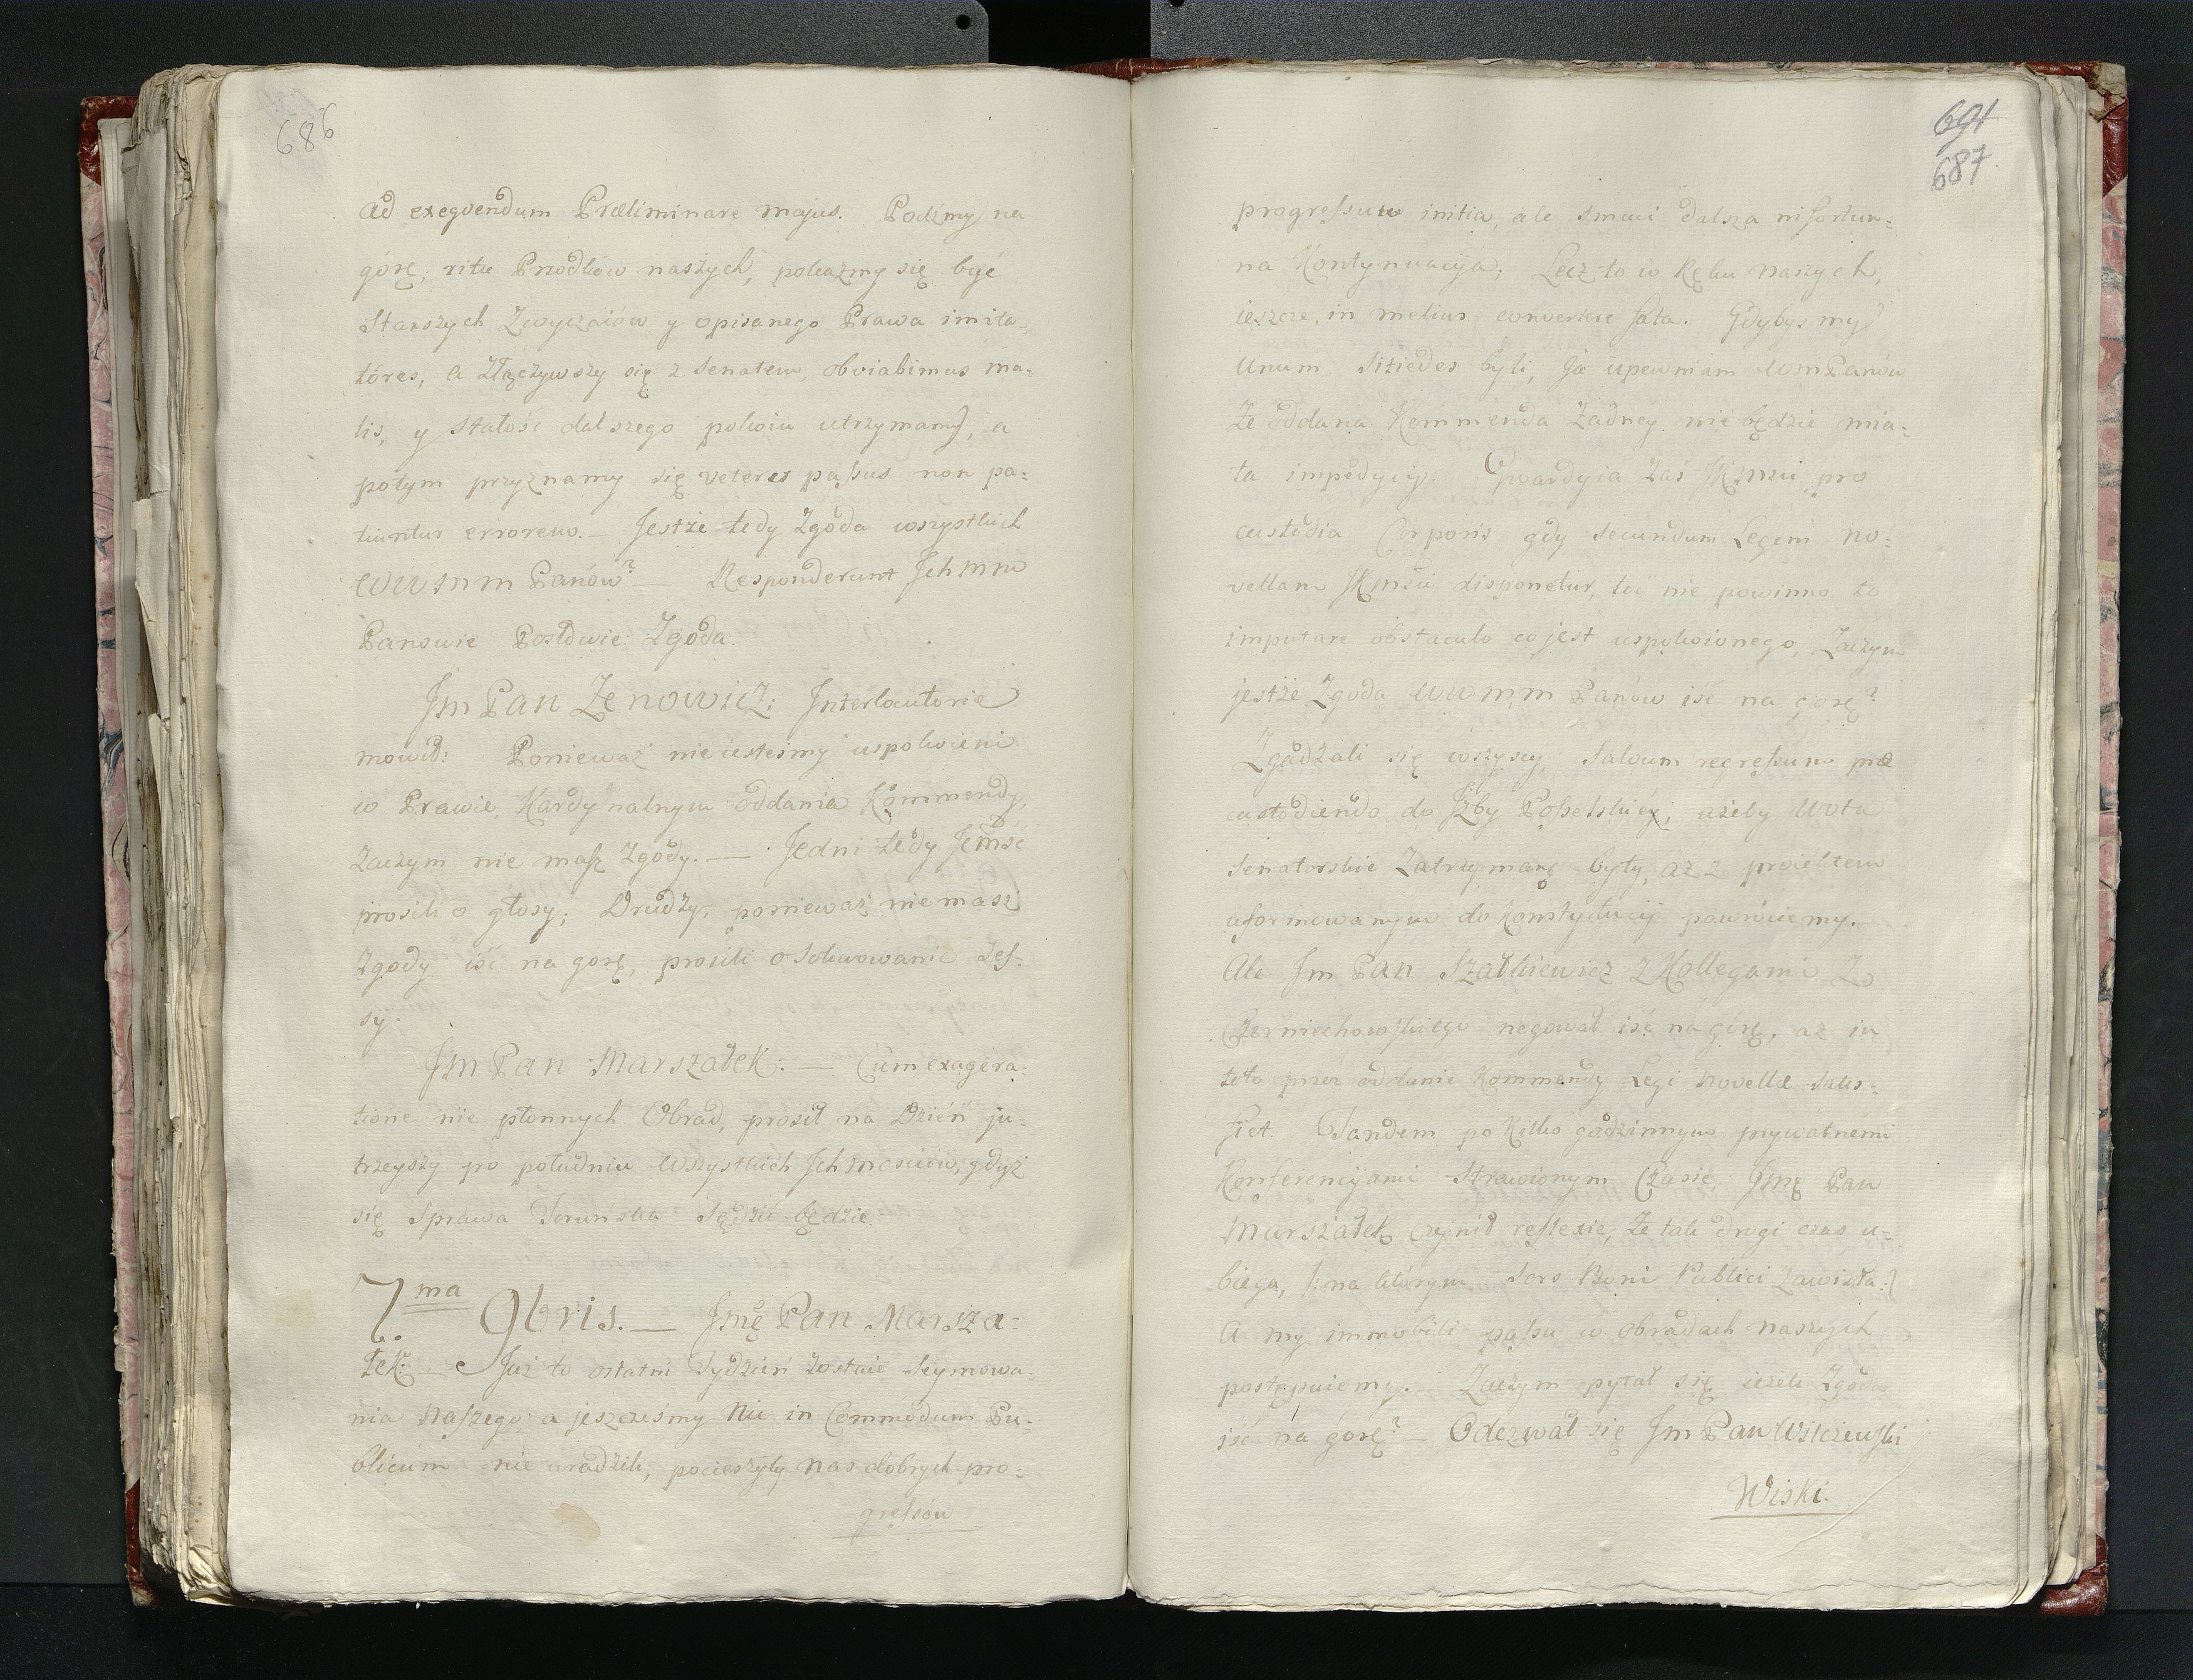 686
ad exeqvendum Præliminare majus. Podźmy na
górę, ritu Przodków naszych, pokażmy się być
Starszych Zwyczaiów y opisanego Prawa imita-
tóres, a złączywszy się z Senatem, obviabimus ma-
lis, y stałość dalszego pokoiu utrzymamy, a
potym przyznamy się veteres passus non pa-
tiuntur errorem. — Jestże tedy Zgoda wszystkich
WWMM Panów? — Responderunt Jchmm
Panowie Posłowie Zgoda.
Jm Pan Zenowicz: Interlocutorie
mowił: Ponieważ nie iesteśmy uspokoieni
w Prawie, Kardynalnym oddania Kommendy,
zaczym nie masz zgody. — Jedni tedy Jchmść
prosili o głosy; Drudzy, ponieważ nie masz
Zgody iść na gorę, prosili o Solwowanie Ses-
sy.
Jm Pan Marszałek: — Cum exagera-
tione nie płonnych Obrad, prosił na Dzień ju-
trzeyszy po południu Wszystkich Jchmościów, gdyż
się Sprawa Toruńska Sądzić będzie.
7ma 9bris. — Jmę Pan Marsza-
łek: — Już to ostatni Tydzień zostaie Seymowa-
nia Naszego, a jeszcześmy Nic in Commodum Pu-
blicum nie uradzili, pocieszyły nas dobrych pro-
gressów
691
687
progressuum initia, ale smuci dalsza nifortun-
na Kontynuacyja; Lecz to w Ręku Naszych,
ieszcze, in melius convertere fata. Gdybysmy
Unum Sitiedes byli, Ja upewniam WMPanów
Ze oddana Kommenda Żadnéy nie będzie mia-
ła impedycij. Gwardyia zaś JKMci pro
custodia Corporis gdy Secundum Legem no-
vellam JKMści disponetur, toć nie powinno to
imputare obstaculo co jest uspokoionego, Zaczym
jestże Zgoda WWMM Panów iść na gorę?
Zgadzali się wszyscy, Salvum regressum præ
custodiendo do Jzby Poselskiéy, ażeby Wota
Senatorskie Zatrzymane były, aż z proiektem
uformowanym do Konstytucij powróciemy.
Ale Jm Pan Szatkiewicz z Kollegami z
Czerniechowskiego negował iść na górę, aż in
toto przez oddanie Kommendy Legi Novellæ Satis-
fiet. Tandem po Kilko godzinnym prywatnemi
Konferencyjami Strawionym Czasie, Jmę Pan
Marszałek czynił reflexię, Ze tak drogi czas u-
biega, /: na którym Sors Boni Publici zawisła :/
A my immobili passu w obradach naszych
postępuiemy. Zaczym pytał się ieżeli Zgoda
iść na górę? — Odezwał się Jm Pan Wilczewski
Wiski.